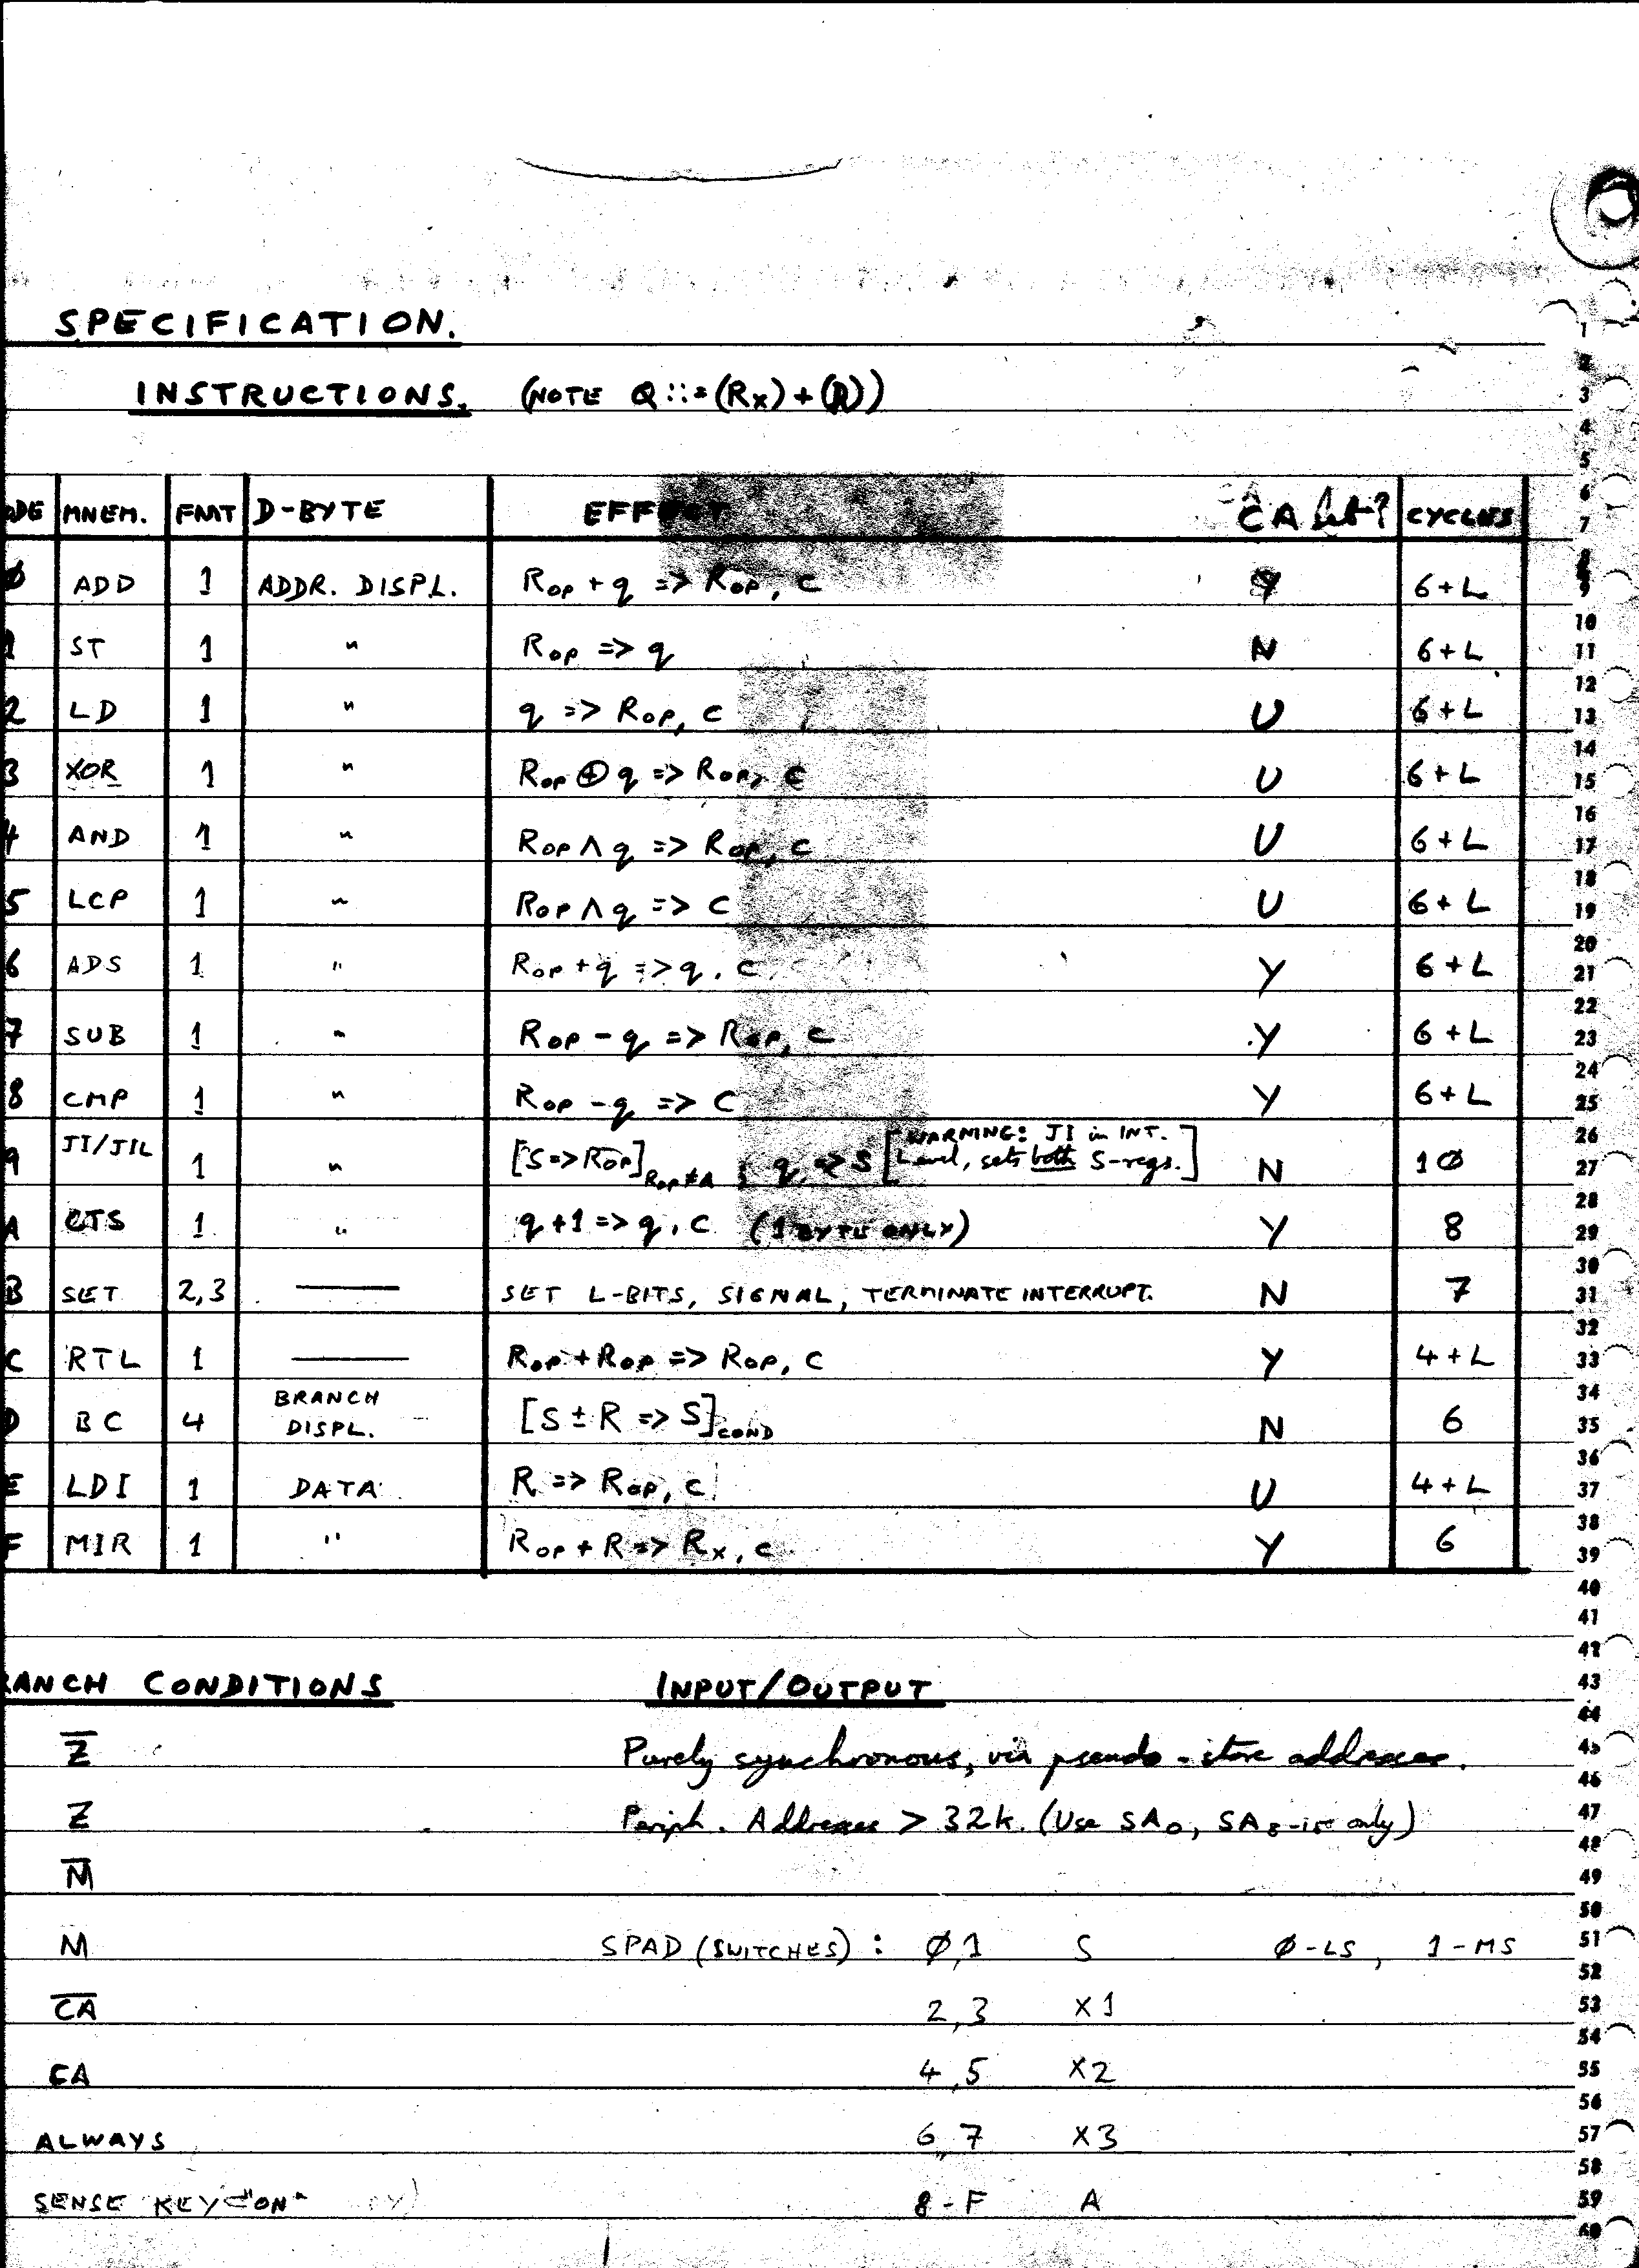 SPECIFICATION.
INSTRUCTIONS. (NOTE Q ::= (Rx) + (R))
ODE MNEM. FMT D-BYTE EFFECT CA set? CYCLES
Ø ADD 1 ADDR. DISPL. Rop + q => Rop, C Y 6+L
1 ST 1 " Rop => q N 6+L
2 LD 1 " q => Rop, C U 6+L
3 XOR 1 " Rop ⊕ q => Rop, C U 6+L
4 AND 1 " Rop ∧ q => Rop, C U 6+L
5 LCP 1 " Rop ∧ q => C U 6+L
6 ADS 1 " Rop + q => q, C Y 6+L
7 SUB 1 " Rop - q => Rop, C Y 6+L
8 CMP 1 " Rop - q => C Y 6+L
9 JI/JIL 1 " [S => Rop] Rop≠A ; q => S [WARNING: JI in INT. Level, sets both S-regs.] N 1Ø
A CTS 1 " q+1 => q, C (1 BYTE ONLY) Y 8
B SET 2,3 — SET L-BITS, SIGNAL, TERMINATE INTERRUPT. N 7
C RTL 1 — Rop + Rop => Rop, C Y 4+L
D BC 4 BRANCH DISPL. [S ± R => S]COND N 6
E LDI 1 DATA R => Rop, C U 4+L
F MIR 1 " Rop + R => Rx, C Y 6
RANCH CONDITIONS INPUT/OUTPUT
Z̅ Purely synchronous, via pseudo-store addresses.
Z Periph. Addresses > 32k. (Use SA0, SA8-15 only)
M̅
M SPAD (SWITCHES) : Ø,1 S Ø-LS, 1-MS
C̅A̅ 2,3 X1
CA 4,5 X2
ALWAYS 6,7 X3
SENSE KEY "ON" 8-F A
1
2
3
4
5
6
7
8
9
10
11
12
13
14
15
16
17
18
19
20
21
22
23
24
25
26
27
28
29
30
31
32
33
34
35
36
37
38
39
40
41
42
43
44
45
46
47
48
49
50
51
52
53
54
55
56
57
58
59
60